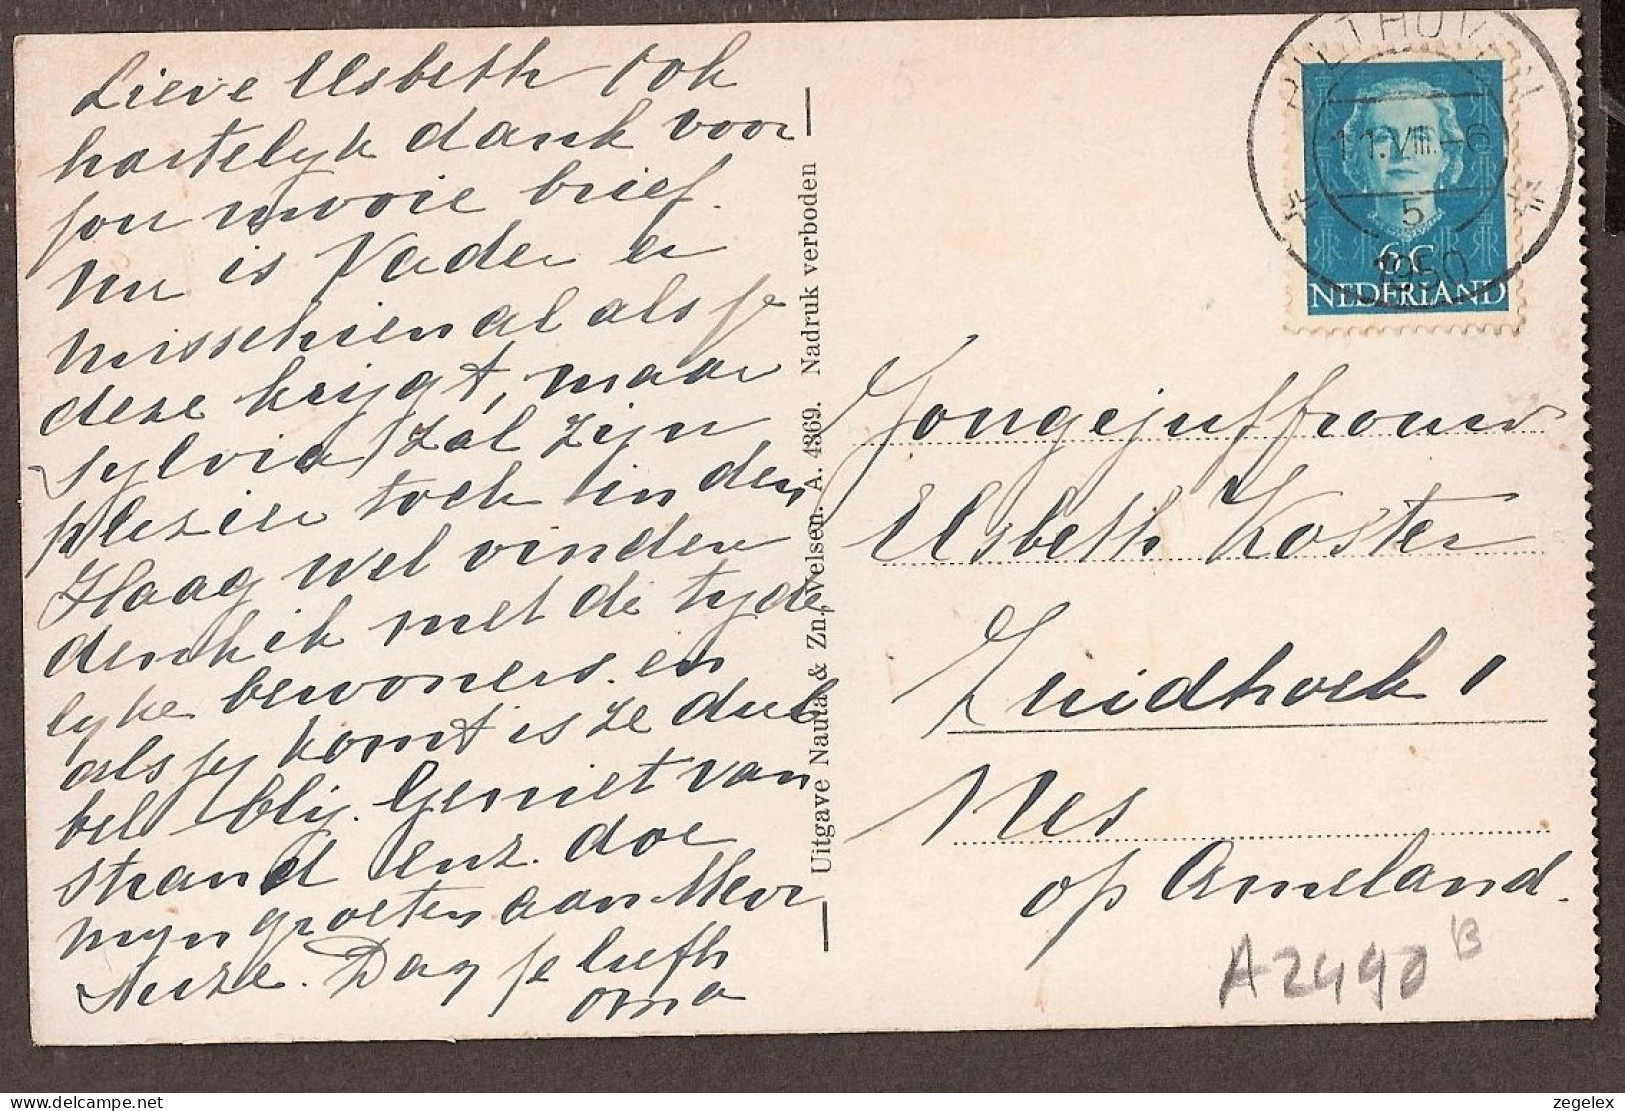 Lieve Elsbeth Ook
hartelyk dank voor
jou mooie brief.
Nu is Vader er
misschien al als je
deze krijgt, maar
Sylvia zal zijn
plezier toch in den
Haag wel vinden
denk ik met de tyde
lyke bewoners. en
als jy komt is ze dub
bel bly. Geniet van
strand enz. doe
myn groeten aan Mevr
Dag je liefh
oma
Uitgave Nauta & Zn., Velsen. A. 4369. Nadruk verboden
BILTHOVEN
11.VIII.-6
5
1950
6 C
NEDERLAND
Jongejuffrouw
Elsbeth Koster
Zuidhoek 1
Nes
op Ameland.
A2490 B
zegelex
www.delcampe.net